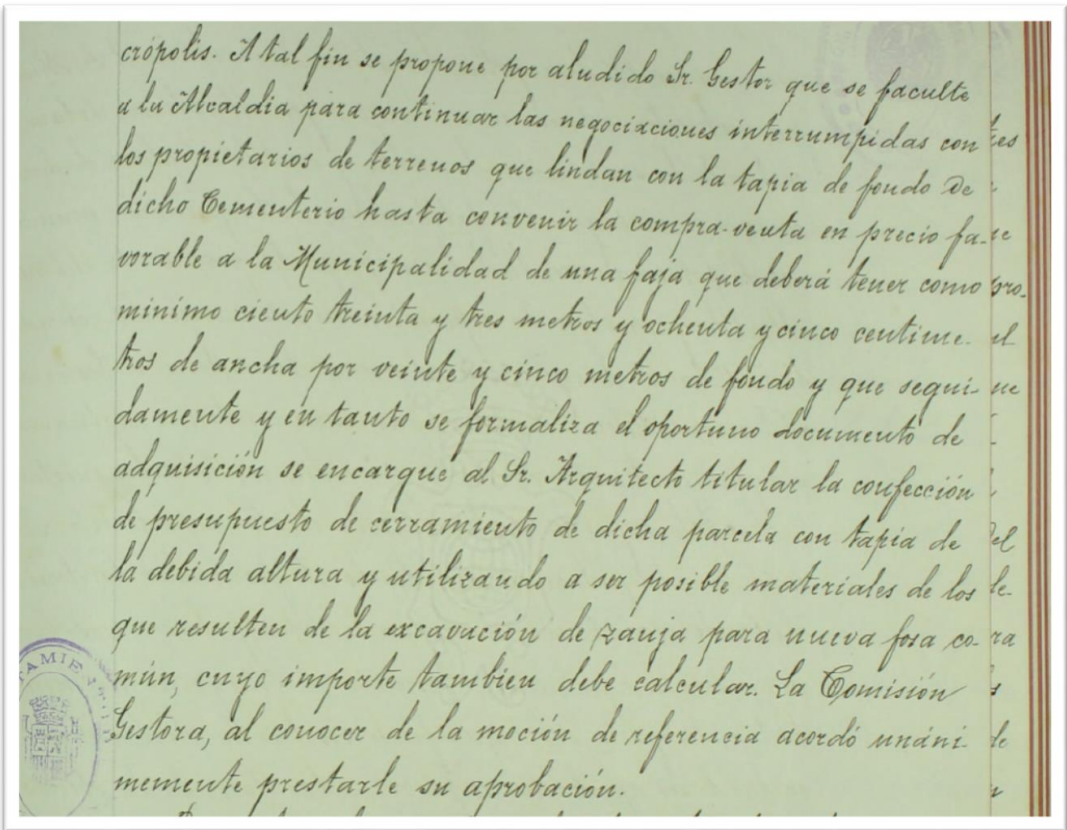 crópolis. A tal fin se propone por aludido Sr. Gestor que se faculte
a la Alcaldía para continuar las negociaciones interrumpidas con
los propietarios de terrenos que lindan con la tapia de fondo de
dicho Cementerio hasta convenir la compra-venta en precio fa-
vorable a la Municipalidad de una faja que deberá tener como
mínimo ciento treinta y tres metros y ochenta y cinco centíme-
tros de ancha por veinte y cinco metros de fondo y que segui-
damente y en tanto se formaliza el oportuno documento de
adquisición se encargue al Sr. Arquitecto titular la confección
de presupuesto de cerramiento de dicha parcela con tapia de
la debida altura y utilizando a ser posible materiales de los
que resulten de la excavación de zanja para nueva fosa co-
mún, cuyo importe tambien debe calcular. La Comisión
Gestora, al conocer de la moción de referencia acordó unáni-
memente prestarle su aprobación.
TAMIEN